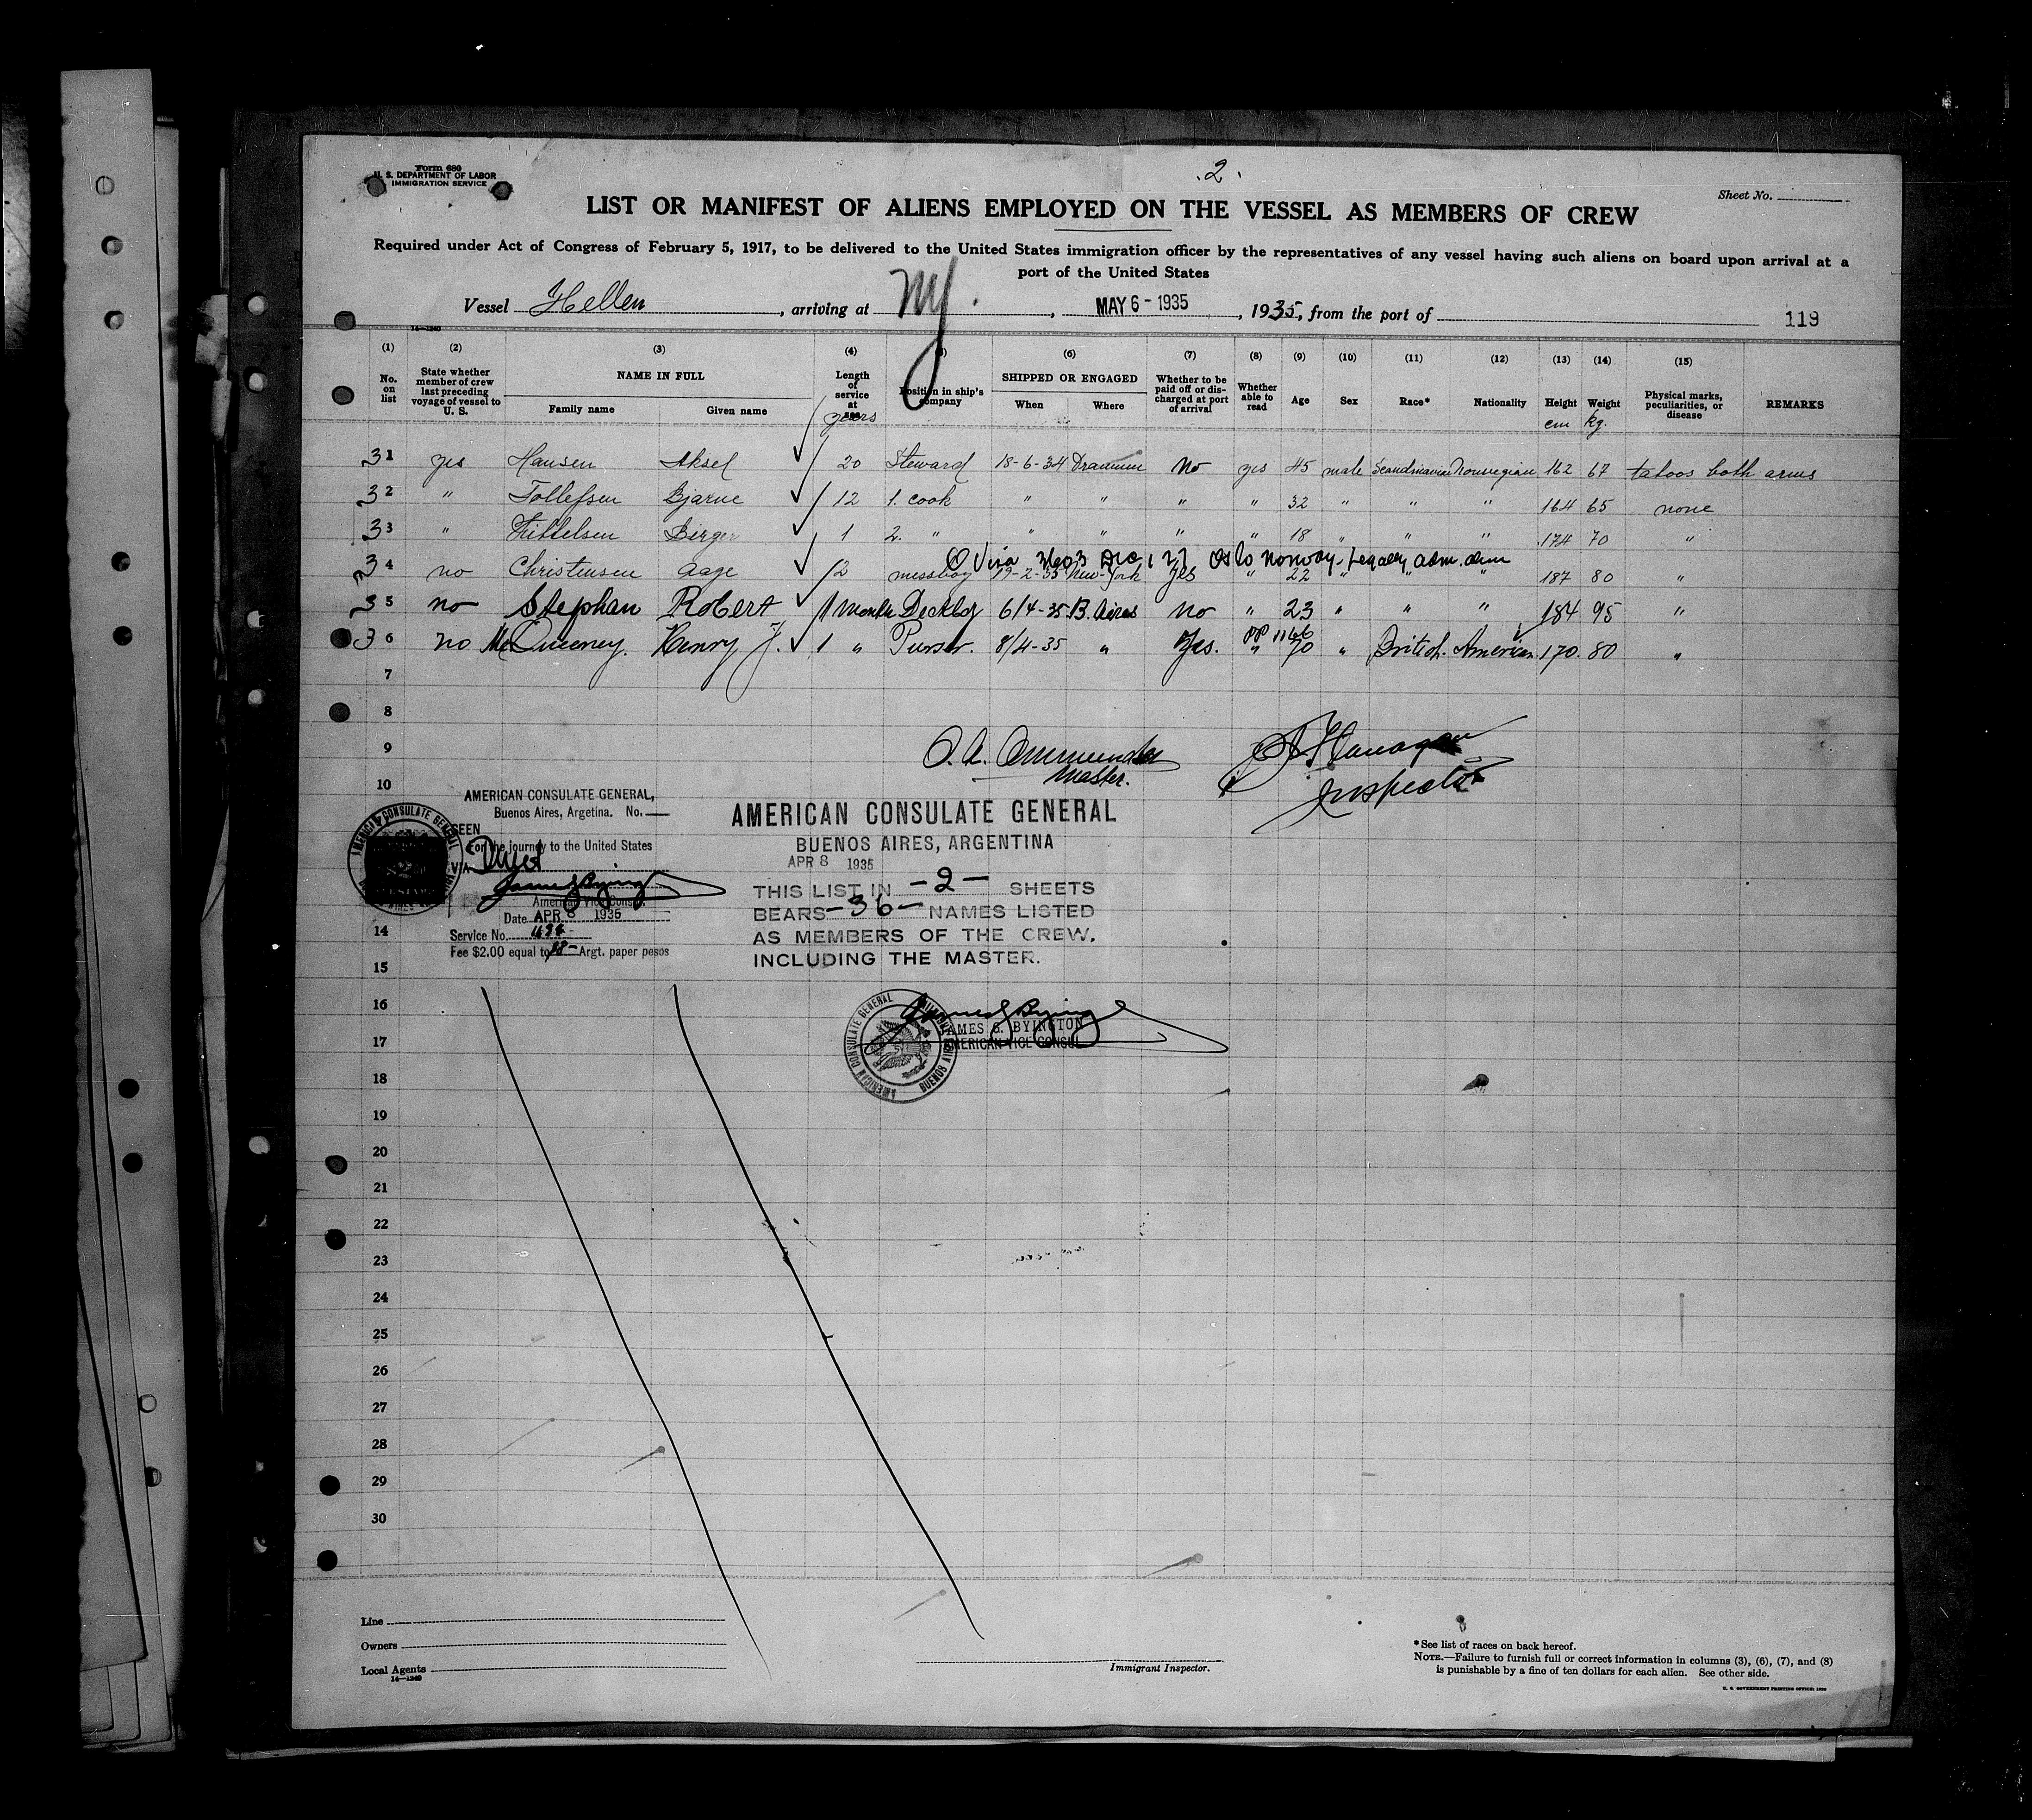 Form 680
U. S. DEPARTMENT OF LABOR
IMMIGRATION SERVICE
.2.
Sheet No.
LIST OR MANIFEST OF ALIENS EMPLOYED ON THE VESSEL AS MEMBERS OF CREW
Required under Act of Congress of February 5, 1917, to be delivered to the United States immigration officer by the representatives of any vessel having such aliens on board upon arrival at a
port of the United States
Vessel Hellen, arriving at NY., MAY 6 - 1935, 1935, from the port of
14-1240
119
(1) (2) (3) (4) (5) (6) (7) (8) (9) (10) (11) (12) (13) (14) (15)
No. on list State whether member of crew last preceding voyage of vessel to U. S. NAME IN FULL Family name Given name Length of service at years Position in ship's company SHIPPED OR ENGAGED When Where Whether to be paid off or discharged at port of arrival Whether able to read Age Sex Race* Nationality Height cm Weight kg. Physical marks, peculiarities, or disease REMARKS
31 yes Hansen Aksel 20 Steward 18-6-34 Drammen No yes 45 male Scandinavian Norwegian 162 67 tatoos both arms
32 " Tollefsen Bjarne 12 1. cook " " " " 32 " " " 164 65 none
33 " Kittelsen Birger 1 2. " " " " " 18 " " " 174 70 "
Oslo Norway - Legally adm.
34 no Christensen Aage 2 messboy 19-2-35 New-York yes " 22 " " " 187 80 "
35 no Stephan Robert 1 Month Deckboy 6/4-35 B. Aires no " 23 " " " 184 95 "
36 no McQueeney. Henry J. 1 " Purser. 8/4-35 " Yes. " 70 " British. American. 170. 80 "
7
8
9
O. A.
Master.
Flanagan
Inspector
10
AMERICAN CONSULATE GENERAL,
Buenos Aires, Argetina. No.
SEEN
For the journey to the United States
VIA Direct
James G. Byington
American Vice Consul.
Date APR 8 1935
Service No.
Fee $2.00 equal to Argt. paper pesos
AMERICAN CONSULATE GENERAL
BUENOS AIRES, ARGENTINA
APR 8 1935
THIS LIST IN -2- SHEETS
BEARS -36- NAMES LISTED
AS MEMBERS OF THE CREW,
INCLUDING THE MASTER.
14
15
16
AMERICAN CONSULATE GENERAL
BUENOS
James G. Byington
JAMES G. BYINGTON
AMERICAN VICE CONSUL
17
18
19
20
21
22
23
24
25
26
27
28
29
30
Line
Owners
Local Agents
14-1240
Immigrant Inspector.
*See list of races on back hereof.
NOTE.—Failure to furnish full or correct information in columns (3), (6), (7), and (8)
is punishable by a fine of ten dollars for each alien. See other side.